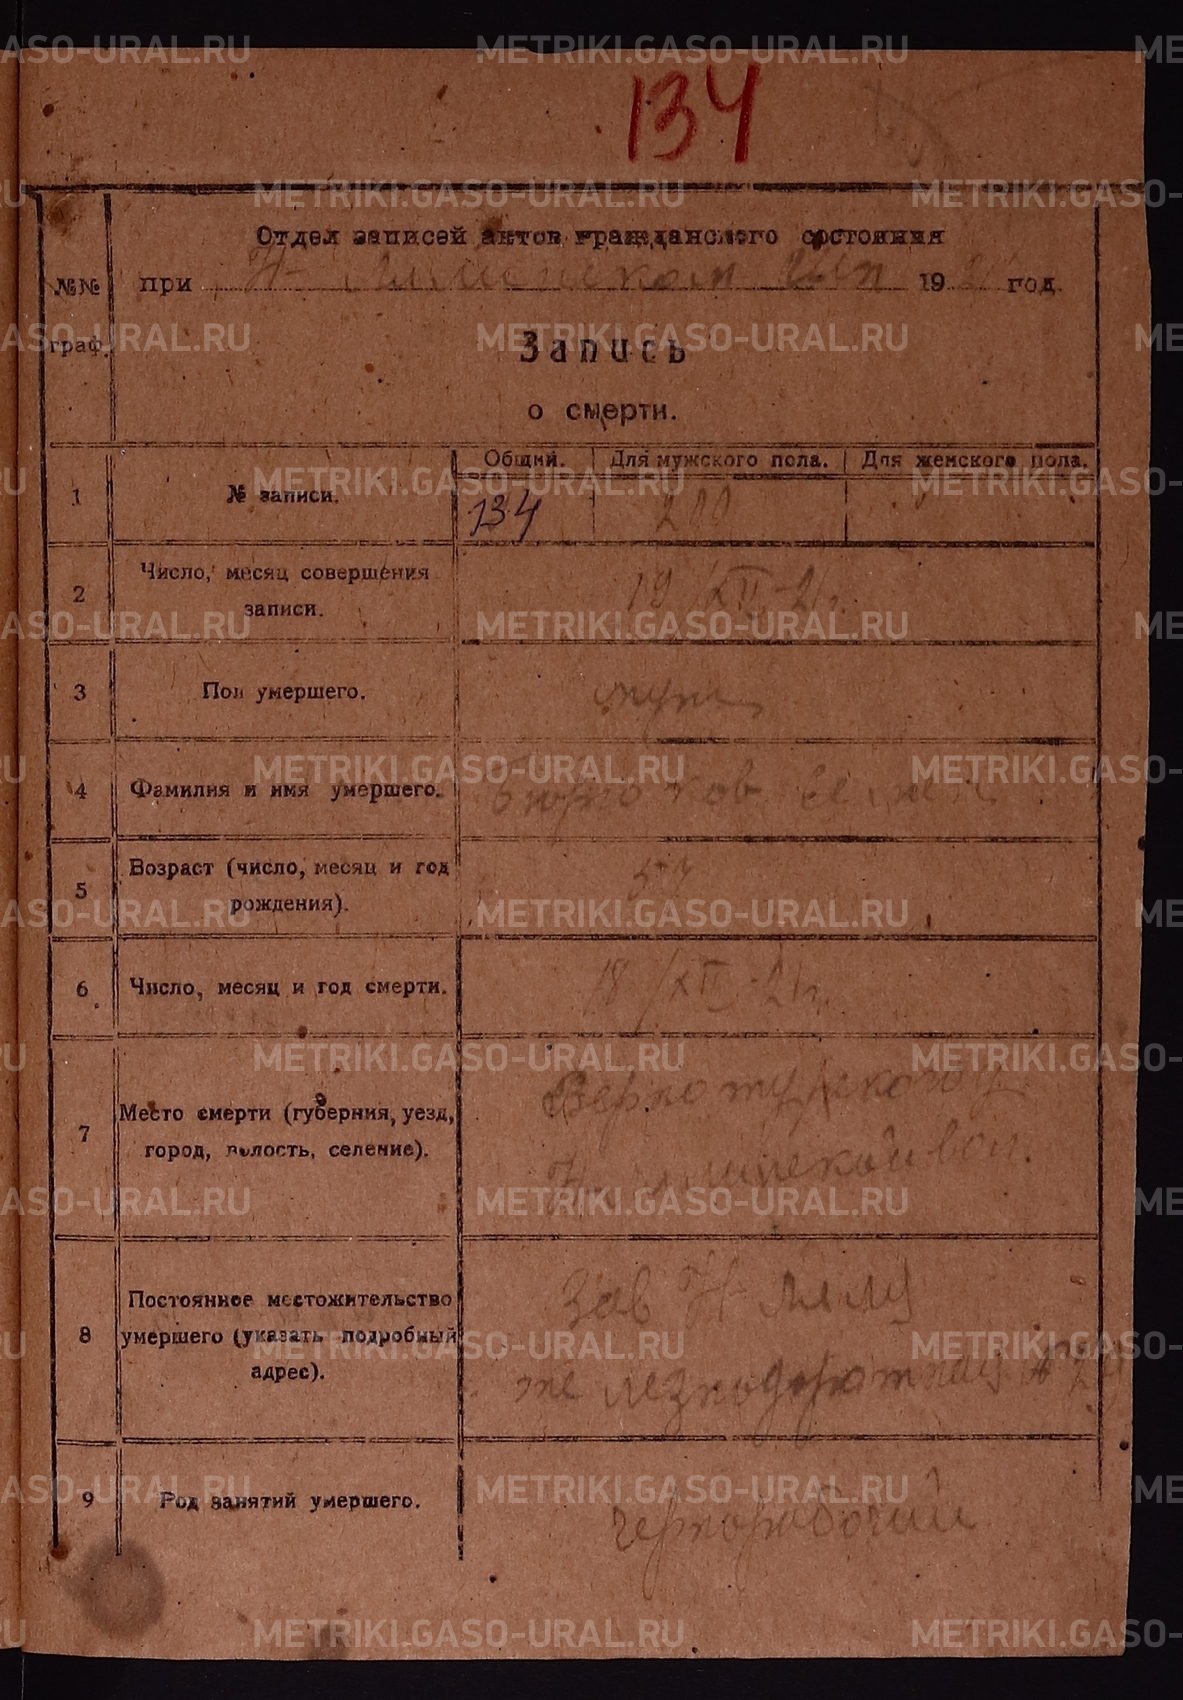 METRIKI.GASO-URAL.RU
134
Отдел записей актов гражданского состояния
№№ при Н-Лялинском 1921 год.
граф.
Запись
о смерти.
Общий. Для мужского пола. Для женского пола.
1 № записи. 134 200
2 Число, месяц совершения
записи. 19/XII-21г.
3 Пол умершего. муж
4 Фамилия и имя умершего.
5 Возраст (число, месяц и год
рождения). 57
6 Число, месяц и год смерти. 18/XII-21г.
Верхотурского у
7 Место смерти (губерния, уезд,
город, волость, селение).
Н. Лялинской вол.
Зав Н Ляля
8 Постоянное местожительство
умершего (указать подробный
адрес).
железнодорожная №
9 Род занятий умершего. чернорабочий